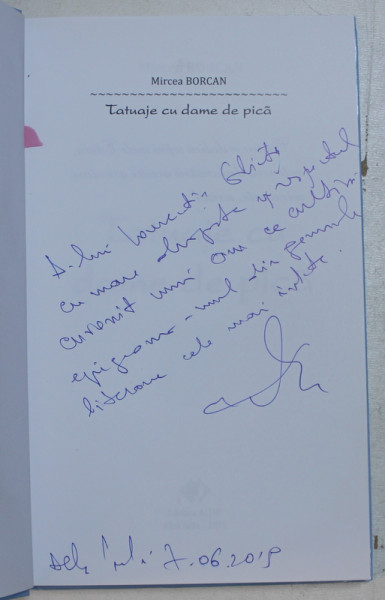 Mircea BORCAN
Tatuaje cu dame de pică
D-lui Laurențiu Ghiță
cu mare dragoste și respectul
cuvenit unui om ce cultivă
epigrama - unul din genurile
literare cele mai iubite.
7.06.2019